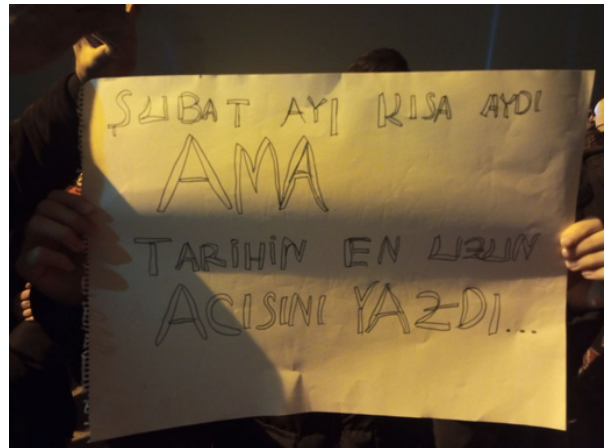 ŞUBAT AYI KISA AYDI
AMA
TARİHİN EN UZUN
ACISINI YAZDI...